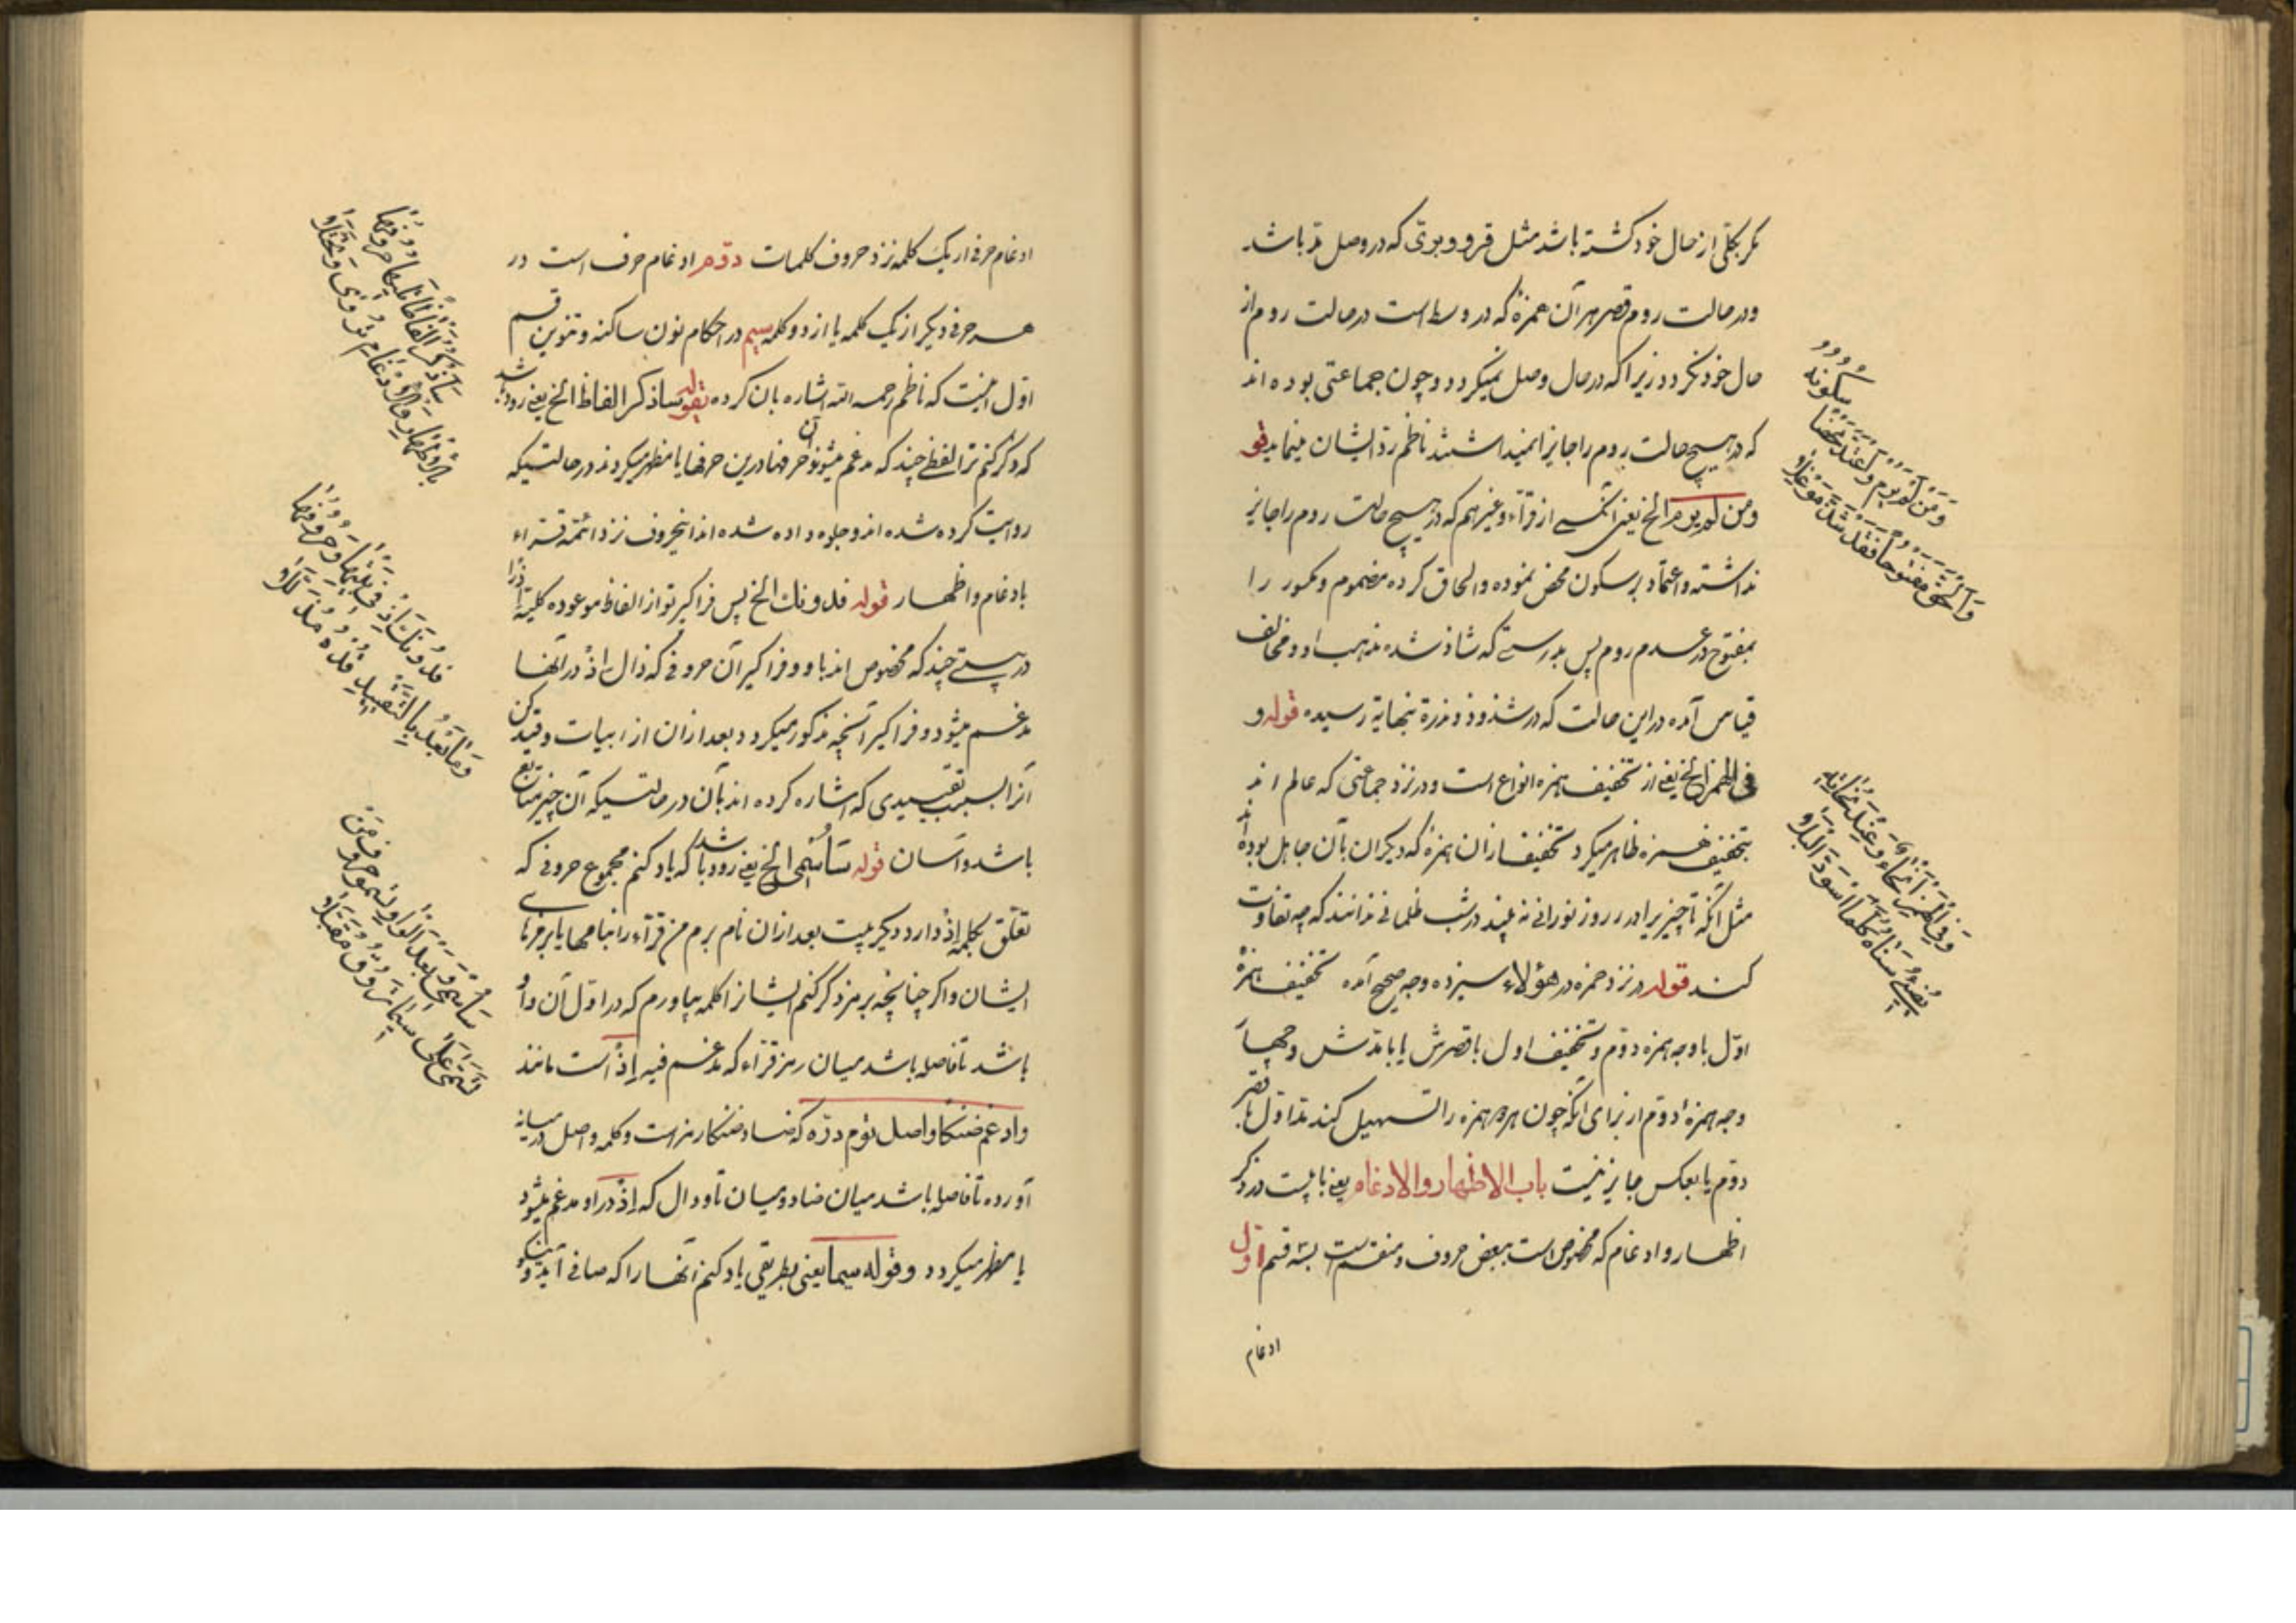 مکر بکلی از حال خود کشته باشد مثل قرو و بوتی که در وصل مد باشد
ودر حالت روم قصر هر آن همزهٔ که در وسط است در حالت روم از
حال خود نکردد زیرا که در حال وصل نمیکردد و چون جماعتی بوده اند
که در هیچ حالت روم را جایز نمیداشتند ناظم رد ایشان مینماید قو
ومن لم یرم الخ یعنی آنکسی از قرّآء وغیرهم که در هیچ حالت روم را جایز
نداشته واعتماد بر سکون محض نموده والحاق کرده مضموم ومکسور را
بمفتوح در عدم روم پس بدرستی که شاذ شده مذهب او ومخالف
قیاس آمده در این حالت که در شذوذ وندرة بنهایة رسیده قوله و
فی الهمز الخ یعنی از تخفیف همزه انواع است ودر نزد جماعتی که عالم اند
بتخفیف همزه ظاهر میکردد تخفیف از آن همزهٔ که دیکران بآن جاهل بوده اند
مثل آنکه تا چیز یرا در روز نورانی نه بیند در شب ظلمانی ندانند که چه تفاوت
کند قوله در نزد حمزه در هؤلاء سیزده وجه صحیح آمده تخفیف همزهٔ
اوّل با وجه همزه دوّم وتخفیف اول با قصرش یا با مدّش وجهها
وجه همزهٔ دوّم از برای آنکه چون هر دو همزه را تسهیل کند مدّ اوّل با قصر
دوّم یا بعکس جایز نیست باب الاظهار والادغام یعنی بابیست در ذکر
اظهار وادغام که مخصوص است ببعض حروف ومنقسم است بسه قسم اوّل
ادغام
سکونه
وَمَنْ لَمْ یَرُمْ وَاعْتَدَّ مَحْضًا
وَاَلْحَقَ مَفْتُوحًا فَقَدْ شَذَّ مُوغِلًا
وَفِی الْهَمْزِ اَنْحَاءٌ وَعِنْدَ نُحَاتِهِ
یُضِیءُ سَنَاهُ کُلَّمَا اسْوَدَّ اَلْیَلَا
ادغام حرفی از یک کلمه نزد حروف کلمات دوّم ادغام حرف است در
هر حرفی دیکر از یک کلمه یا از دو کلمه سیم در احکام نون ساکنه وتنوین قسم
اوّل اینست که ناظم رحمه الله اشاره بآن کرده بقوله ساذکر الفاظا الخ یعنی زود باشد
که ذکر کنم ترا لفظی چند که مدغم میشوند آن حرفها در این حرفها یا مظهر میکردند در حالتیکه
روایت کرده شده اند وجلوه داده شده اند اینحروف نزد ائمّه قرّاء
بادغام واظهار قوله فدونک الخ پس فراکیر تو از الفاظ موعوده کلمهٔ اذ را
در بیتی چند که مخصوص اند باو وفراکیر آن حروفی که ذال اذ در آنها
مدغم میشود وفراکیر آنچه مذکور میکردد بعد از آن از ابیات وقید کن
آنرا بسبب تقییدی که اشاره کرده اند بآن در حالتیکه آن چیز متابع
باشد وآسان قوله سَأُسْمِی الخ یعنی زود باشد که یاد کنم مجموع حروفی که
تعلّق بکلمه اذْ دارد در یک بیت بعد از آن نام برم من قرّآء را بنامها یا برمزهای
ایشان واکر چنانچه برمز ذکر کنم ایشانرا کلمه بیاورم که در اوّل آن واو
باشد تا فاصله باشد میان رمز قرّاء که مدغم فیه اِذْ است مانند
وادغم ضنکا واصل توم درّه که ضاد ضنکا رمز است وکلمه واصل در میانه
آورده تا فاصله باشد میان ضاد ومیان تا ودال که اِذْ در او مدغم میشود
یا مظهر میکردد وقوله سیما یعنی بطریقی یاد کنم آنها را که صافی آید ونیکو
سَاَذْکُرُ اَلْفَاظًا تَلِیهَا حُرُوفُهَا
بِالْاِظْهَارِ وَالْاِدْغَامِ تُرْوٰی وَتُجْتَلَا
فَدُونَکَ اِذْ فِی بَیْتِهَا وَحُرُوفُهَا
وَمَا بَعْدُ بِالتَّقْیِیدِ قُدْهُ مُذَلَّلَا
سَاُسْمِی وَبَعْدَ الْوَاوِ تَسْمُو حُرُوفُ مَنْ
تَسَمّٰی عَلٰی سِیمَا تَرُوقُ مُقَبَّلَا